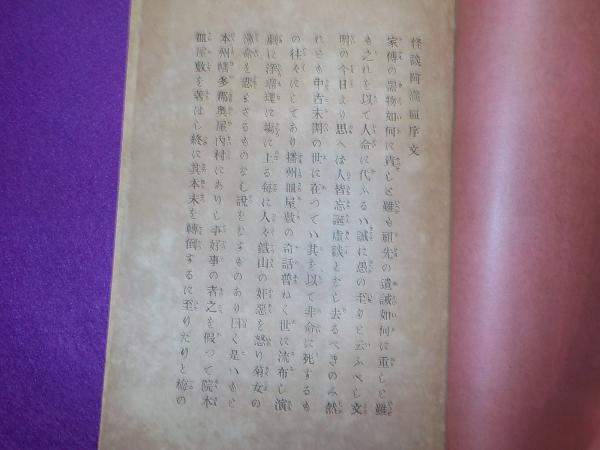 怪談阿満皿序文
家傳の器物如何に貴しと雖も祖先の遺誡如何に重しと雖
も之れを以て人命に代ふるハ誠に愚の至りと云ふべし文
明の今日より思へば人皆忘誕虚談となし去るべきのみ然
れども中古未開の世に在つてハ其を以て非命に死するも
の往々にしてあり播州皿屋敷の奇話普ねく世に流布し演
劇に浄瑠理に場に上る毎に人々鉄山の奸悪を怒り菊女の
薄命を悲まざるものなし説をなすものあり曰く是ハもと
本州幡多郡奥屋内村にありし事好事の者之を假つて院本
皿屋敷を著はし終に其本末を轉倒するに至りたりと梅の